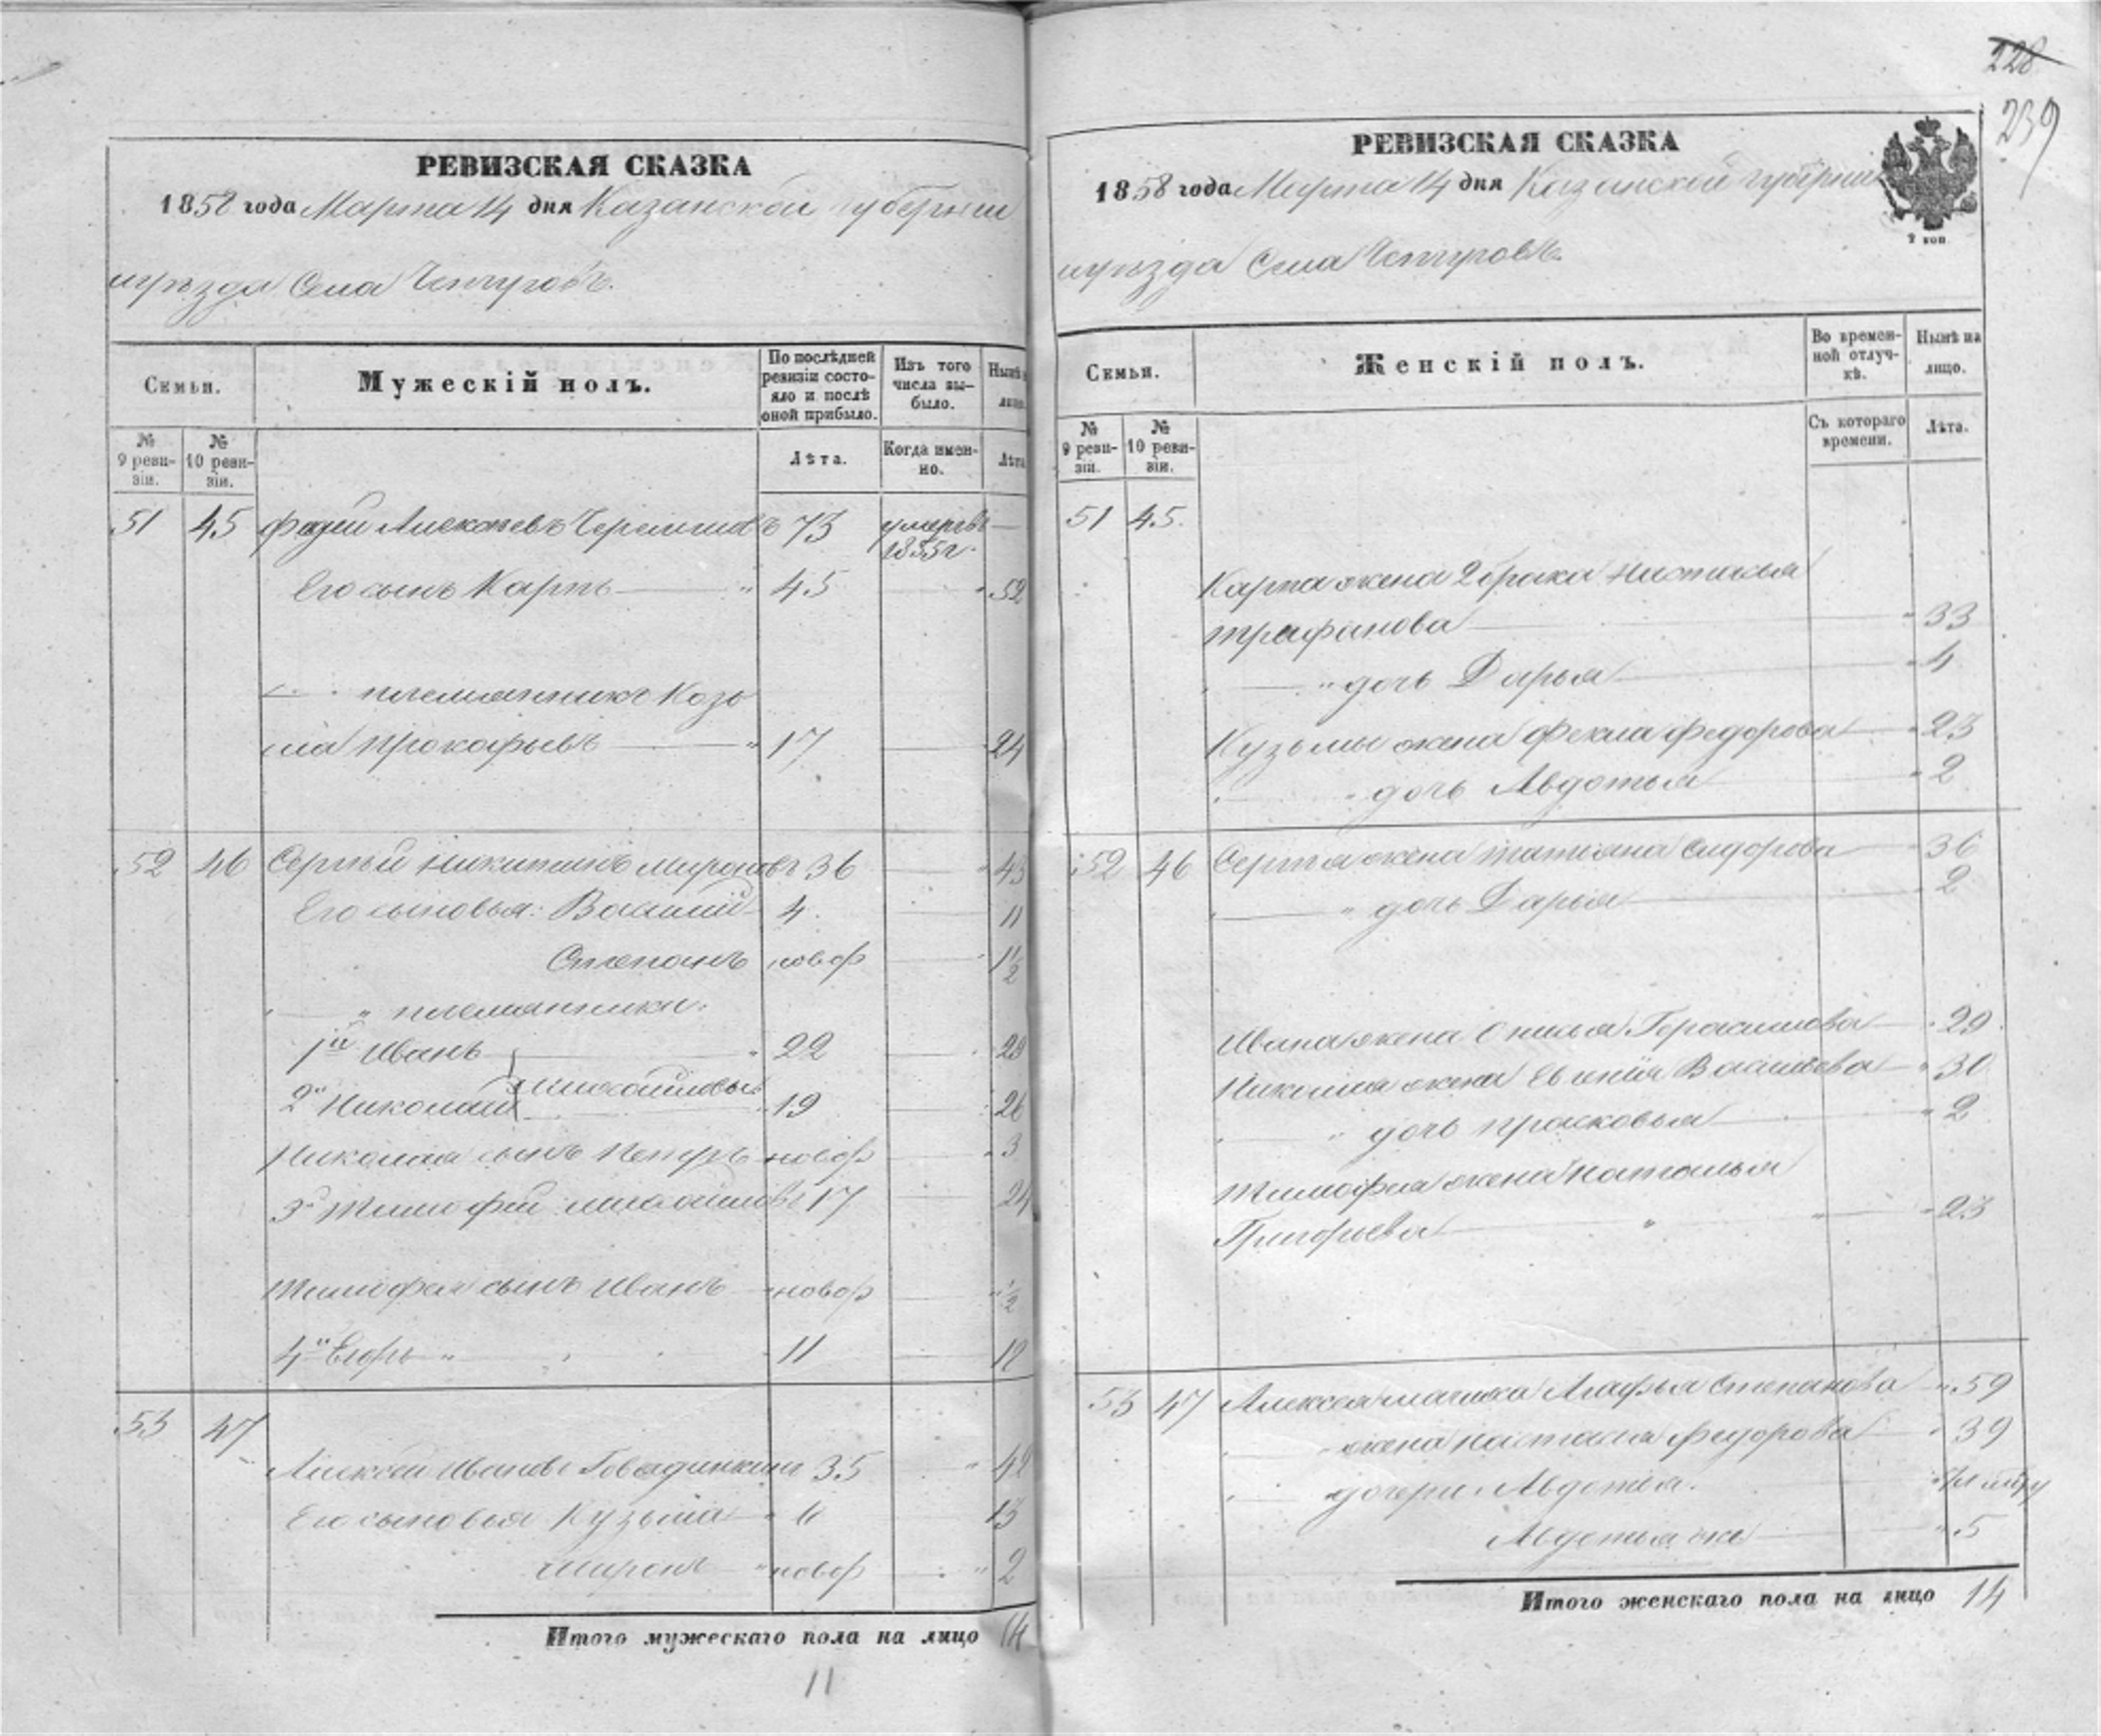 228
239
РЕВИЗСКАЯ СКАЗКА
1858 года Марта 14 дня Казанской губернии
уѣзда Села
Семьи.
Мужескій полъ.
По послѣдней ревизіи состояло и послѣ оной прибыло.
Изъ того числа выбыло.
Нынѣ
лицо.
№ 9 ревизіи.
№ 10 ревизіи.
Лѣта.
Когда именно.
Лѣта
51 45 Фадей Алексѣевъ 73 умеръ 1855 г.
Его сынъ Карпъ 45 52
племянникъ Козь
ма Прокофьевъ 17 24
52 46 Сергѣй Никитинъ Мироновъ 36 43
Его сыновья: Василий 4 11
Степанъ новор 1 1/2
племянники:
1й Иванъ 22 29
Михайловы
2й Николай 19 26
Николая сынъ Петръ новор 3
3й Тимофей Михайловъ 17 24
Тимофея сынъ Иванъ новор 1/2
4й Егоръ 11 18
53 47
Алексей Ивановъ 35 42
Его сыновья Кузьма 6 13
Миронъ новор 2
Итого мужескаго пола на лицо 14
11
РЕВИЗСКАЯ СКАЗКА
1858 года Марта 14 дня Казанской губернии
2 коп
уѣзда Села
Семьи.
Женскій полъ.
Во временной отлучкѣ.
Нынѣ на лицо.
№ 9 ревизіи.
№ 10 ревизіи.
Съ котораго времени.
Лѣта.
51 45.
Карпа жена 2 брака Настасья
Трифонова 33
дочь Дарья 4
Кузьмы жена Фекла Федорова 23
дочь Авдотья 2
52 46 Сергѣя жена Татьяна Сидорова 36
дочь Дарья 2
Ивана жена Герасимова 29
Николая жена Васильева 30
дочь Прасковья 2
Тимофея жена Наталья
Григорьева 23
53 47 Алексея мачиха Агафья Степанова 59
жена Настасья Федорова 39
дочери: Авдотья.
Авдотья же 5
Итого женскаго пола на лицо 14